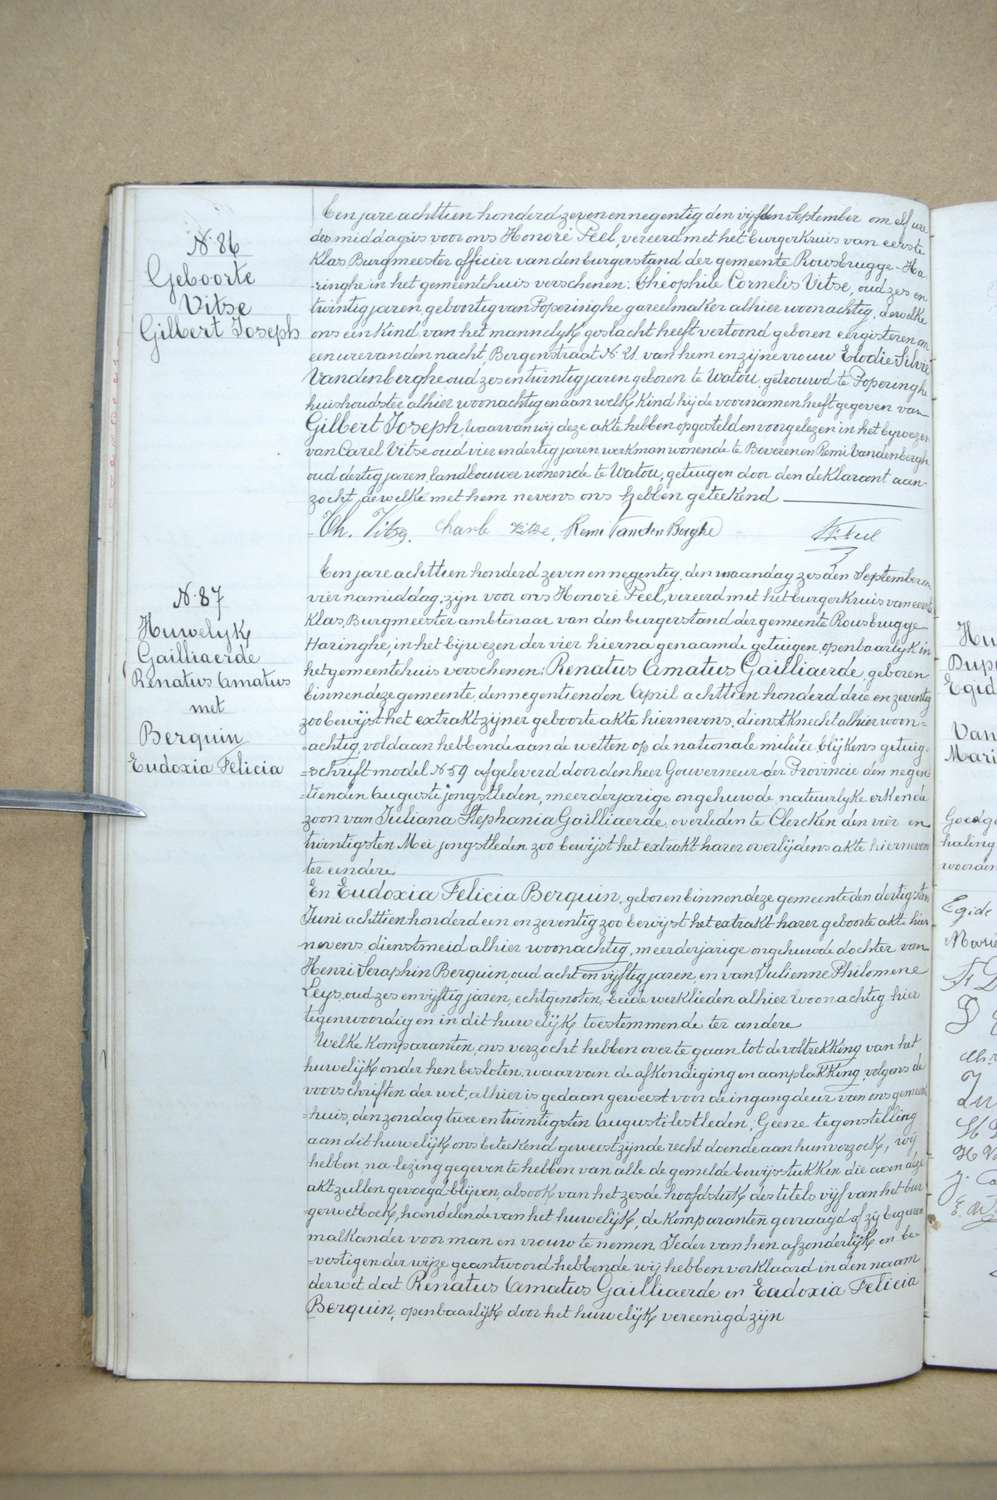 N. 86
Geboorte
Vitse
Gilbert Joseph
Een jare achttien honderd zeven en negentig den vijfden September om elf ure
des middags is voor ons Honoré Peel, vereerd met het burgerkruis van eerste
klas Burgmeester officier van den burgerstand der gemeente Rousbrugge-Ha-
-ringhe in het gemeentehuis verschenen: Théophile Cornelis Vitse, oud zes en
twintig jaren, geboortig van Poperinghe, gareelmaker alhier woonachtig, dewelke
ons een kind van het mannelyk geslacht heeft vertoond geboren eergisteren om
een ure van den nacht, Bergenstraat N. 21. van hem en zijne vrouw Elodie Silvie
Vandenberghe oud zes en twintig jaren geboren te Watou, getrouwd te Poperinghe
huishoudster alhier woonachtig en aan welk kind hij de voornamen heeft gegeven van
Gilbert Joseph, waarvan wij deze akte hebben opgesteld en voorgelezen in het bijwezen
van Carel Vitse oud vier en dertig jaren werkman wonende te Beveren en Remi Vandenbergh
oud dertig jaren, landbouwer wonende te Watou, getuigen door den deklarant aan-
zocht, dewelke met hem nevens ons hebben geteekend
Th. Vitse. Charle Vitse, Remi Vanden Berghe H. Peel
N. 87
Huwelyk
Gailliaerde
Renatus Amatus
met
Berquin
Eudoxia Felicia
Een jare achttien honderd zeven en negentig, den maandag zesden September om
vier namiddag, zijn voor ons Honoré Peel, vereerd met het burgerkruis van eerste
klas, Burgmeester ambtenaar van den burgerstand der gemeente Rousbrugge
Haringhe, in het bijwezen der vier hierna genaamde getuigen, openbaarlijk in
het gemeentehuis verschenen: Renatus Amatus Gailliaerde, geboren
binnen deze gemeente, den negentienden April achttien honderd drie en zeventig
zoo bewijst het extrakt zijner geboorte akte hiernevens, dienstknecht alhier woon-
-achtig, voldaan hebbende aan de wetten op de nationale militie blijkens getuig-
-schrift model N. 59 afgeleverd door den heer Gouverneur der Provincie den negen
-tienden Auguste jongstleden, meerderjarige ongehuwde natuurlyke erkende
zoon van Juliana Stephania Gailliaerde, overleden te Clercken den vier en
twintigsten Mei jongstleden zoo bewijst het extrakt harer overlijdens akte hiernevens
ter eendere
En Eudoxia Felicia Berquin, geboren binnen deze gemeente den dertigsten
Juni achttien honderd een en zeventig zoo bewijst het extrakt harer geboorte akte hier
nevens dienstmeid alhier woonachtig, meerderjarige ongehuwde dochter van
Henri Seraphin Berquin, oud acht en vijftig jaren, en van Julienne Philomene
Leys, oud zes en vijftig jaren, echtgenoten, beide werklieden alhier woonachtig hier
tegenwoordig en in dit huwelijk toestemmende ter andere
Welke komparanten, ons verzocht hebben over te gaan tot de voltrekking van het
huwelijk onder hen besloten, waarvan de afkondiging en aanplakking, volgens de
voorschriften der wet, alhier is gedaan geweest voor de ingangdeur van ons gemeente
-huis, den zondag twee en twintigsten Augusti lestleden. Geene tegenstelling
aan dit huwelijk ons beteekend geweest zijnde recht doende aan hun verzoek, wij
hebben na lezing gegeven te hebben van alle de gemelde bewijsstukken die aan deze
akt zullen gevoegd blijven, alsook van het zesde hoofdstuk des titels vijf van het bur
-gerwetboek, handelende van het huwelijk, de komparanten gevraagd of zij begeeren
malkander voor man en vrouw te nemen. Ieder van hen afzonderlijk en be-
-vestigender wijze geantwoord hebbende wij hebben verklaard in den naam
der wet dat Renatus Amatus Gailliaerde en Eudoxia Felicia
Berquin, openbaarlijk door het huwelijk vereenigd zijn
Egid
Van
Mari
haling
Egide
Marie